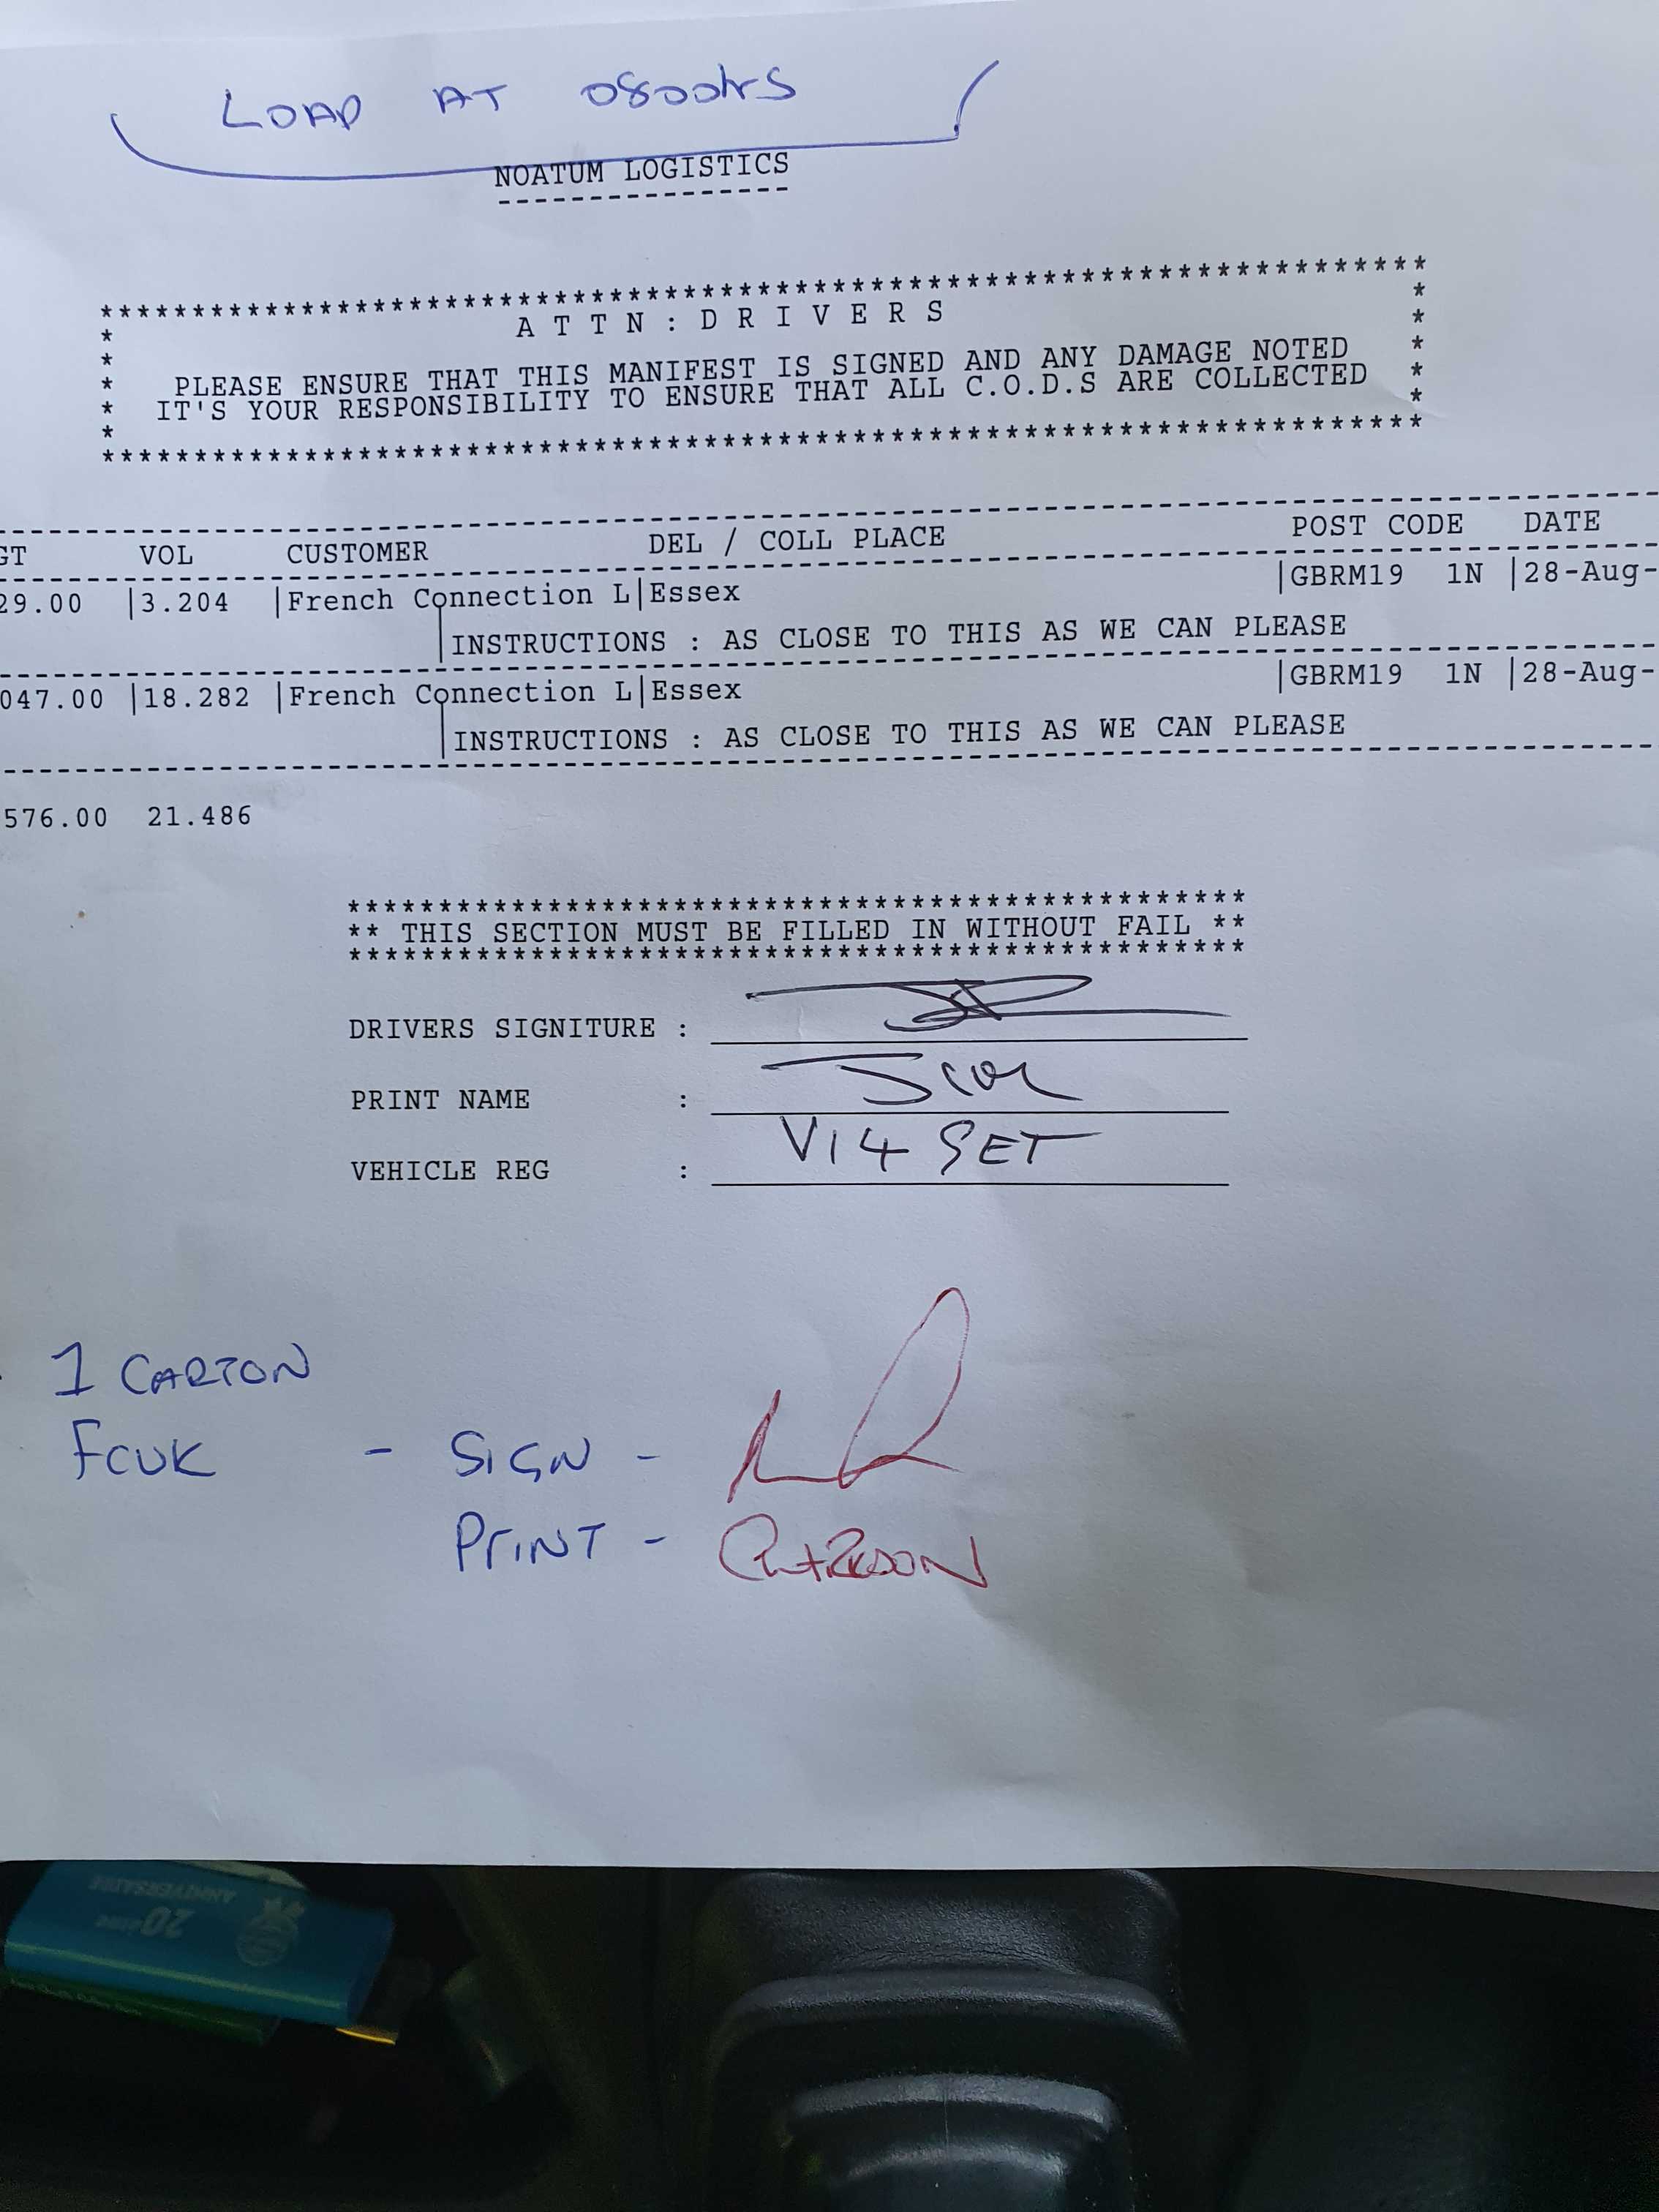 LOAD AT 0800hrs
NOATUM LOGISTICS
----------------
*************************************************************************
* ATTN:DRIVERS *
* PLEASE ENSURE THAT THIS MANIFEST IS SIGNED AND ANY DAMAGE NOTED *
* IT'S YOUR RESPONSIBILITY TO ENSURE THAT ALL C.O.D.S ARE COLLECTED *
*************************************************************************
GT VOL CUSTOMER DEL / COLL PLACE POST CODE DATE
29.00 |3.204 |French Connection L|Essex |GBRM19 1N |28-Aug-
|INSTRUCTIONS : AS CLOSE TO THIS AS WE CAN PLEASE
047.00 |18.282 |French Connection L|Essex |GBRM19 1N |28-Aug-
|INSTRUCTIONS : AS CLOSE TO THIS AS WE CAN PLEASE
576.00 21.486
**************************************************
** THIS SECTION MUST BE FILLED IN WITHOUT FAIL **
**************************************************
DRIVERS SIGNITURE :
PRINT NAME :
VEHICLE REG : V14 SET
1 CARTON
FCUK - SIGN -
PRINT - CLARKSON
20 ANNIVERSAIRE